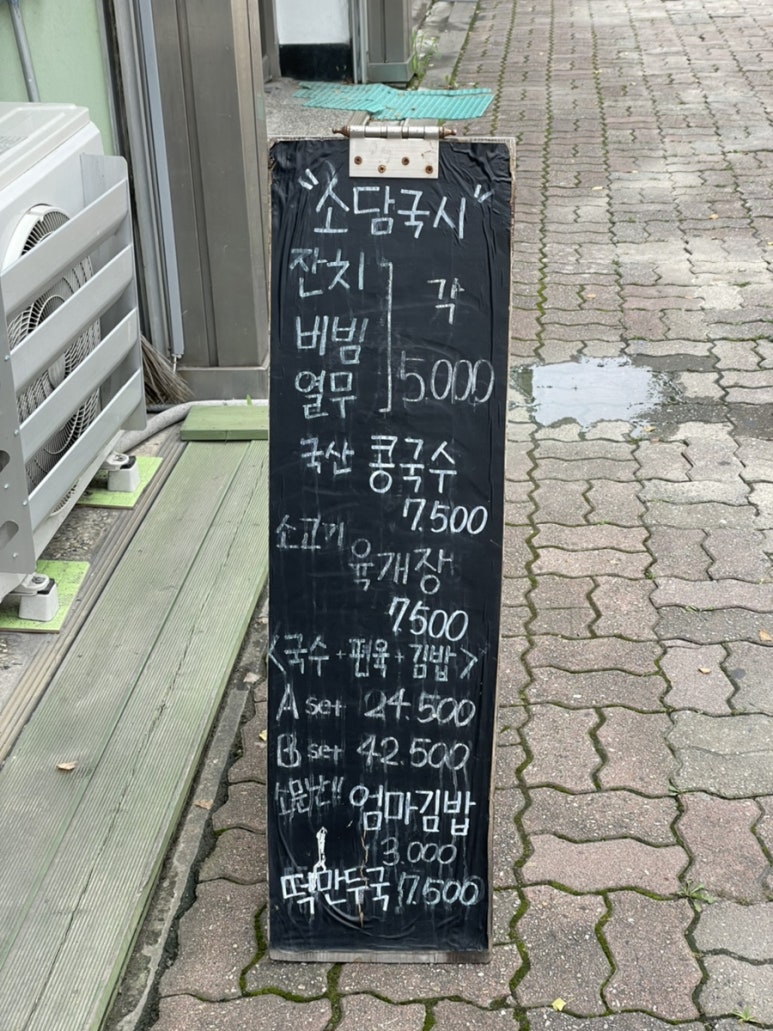 "소담국시"
잔치
비빔
열무
각
5.000
국산 콩국수
7.500
소고기 육개장
7.500
<국수+편육+김밥>
A set 24.500
B set 42.500
소문난!! 엄마김밥
3.000
떡만두국 7.500